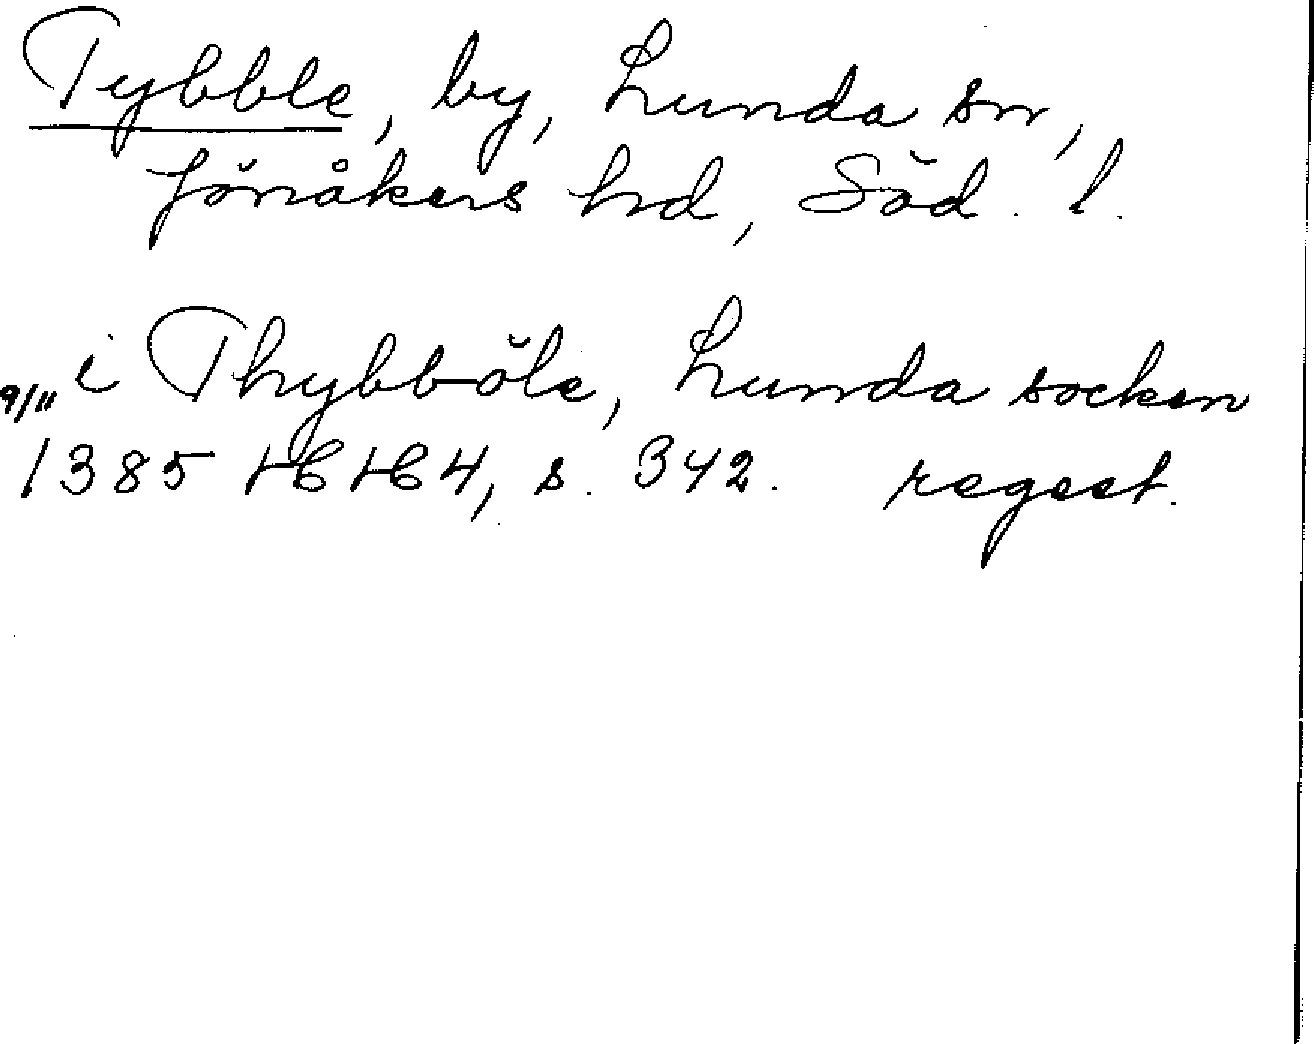 Tybble, by, Lunda sn,
Jönåkers hd, Söd. l.
9/11 i Thybböle, Lunda socken
1385 HGHG4, s. 342. regest.